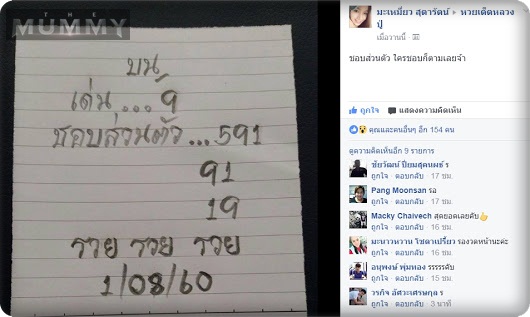 THE
MUMMY
บน
เด่น...9
ชอบส่วนตัว...591
91
19
รวย รวย รวย
1/08/60
มะเหมี่ยว สุดารัตน์ ▸ หวยเด็ดหลวงปู่
เมื่อวานนี้
ชอบส่วนตัว ใครชอบก็ตามเลยจ้า
ถูกใจ แสดงความคิดเห็น
คุณและคนอื่นๆ อีก 154 คน
ดูความคิดเห็นอีก 9 รายการ
ชัยวัฒน์ ปิยมสุคนฆช์ ร
ถูกใจ · ตอบกลับ · 17 ชม.
Pang Moonsan รอ
ถูกใจ · ตอบกลับ · 17 ชม.
Macky Chaivech สุดยอดเลยคับ👍
ถูกใจ · ตอบกลับ · 16 ชม.
มะนาวหวาน โชดาเปรี้ยว รองวดหน้านะค่ะ
ถูกใจ · ตอบกลับ · 16 ชม.
อนุพงษ์ พุ่มทอง รรรรรคับ
ถูกใจ · ตอบกลับ · 15 ชม.
วรกิจ อัศวะเศรษฐกุล ร
ถูกใจ · ตอบกลับ · 3 นาที